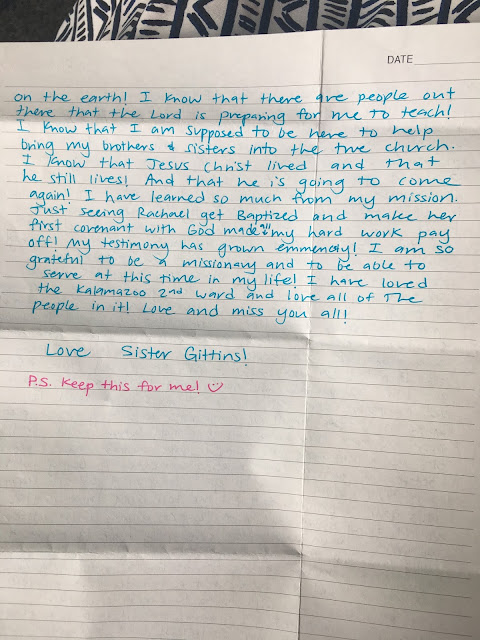 DATE
on the earth! I know that there are people out
there that the Lord is preparing for me to teach!
I know that I am supposed to be here to help
bring my brothers & sisters into the true church.
I know that Jesus Christ lived and that
he still lives! And that he is going to come
again! I have learned so much from my mission.
Just seeing Rachael get Baptized and make her
first covenant with God made my hard work pay
off! My testimony has grown emmencly! I am so
grateful to be a missionary and to be able to
serve at this time in my life! I have loved
the Kalamazoo 2nd ward and love all of The
people in it! Love and miss you all!
Love Sister Gittins!
P.S. Keep this for me!